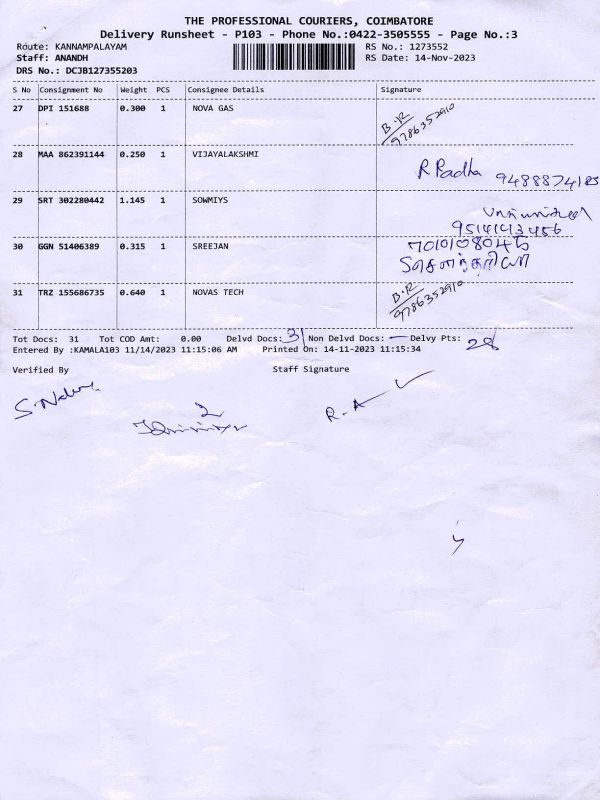 THE PROFESSIONAL COURIERS, COIMBATORE
Delivery Runsheet - P103 - Phone No.:0422-3505555 - Page No.:3
Route: KANNAMPALAYAM RS No.: 1273552
Staff: ANANDH RS Date: 14-Nov-2023
DRS No.: DCJB127355203
S No Consignment No Weight PCS Consignee Details Signature
27 DPI 151688 0.300 1 NOVA GAS B.R
9786352910
28 MAA 862391144 0.250 1 VIJAYALAKSHMI R Radha 9488874185
29 SRT 302280442 1.145 1 SOWMIYS
9514143456
30 GGN 51406389 0.315 1 SREEJAN 7010108045
31 TRZ 155686735 0.640 1 NOVAS TECH B.R
9786352910
Tot Docs: 31 Tot COD Amt: 0.00 Delvd Docs: 31 Non Delvd Docs: — Delvy Pts: 28
Entered By :KAMALA103 11/14/2023 11:15:06 AM Printed On: 14-11-2023 11:15:34
Verified By Staff Signature
R.A